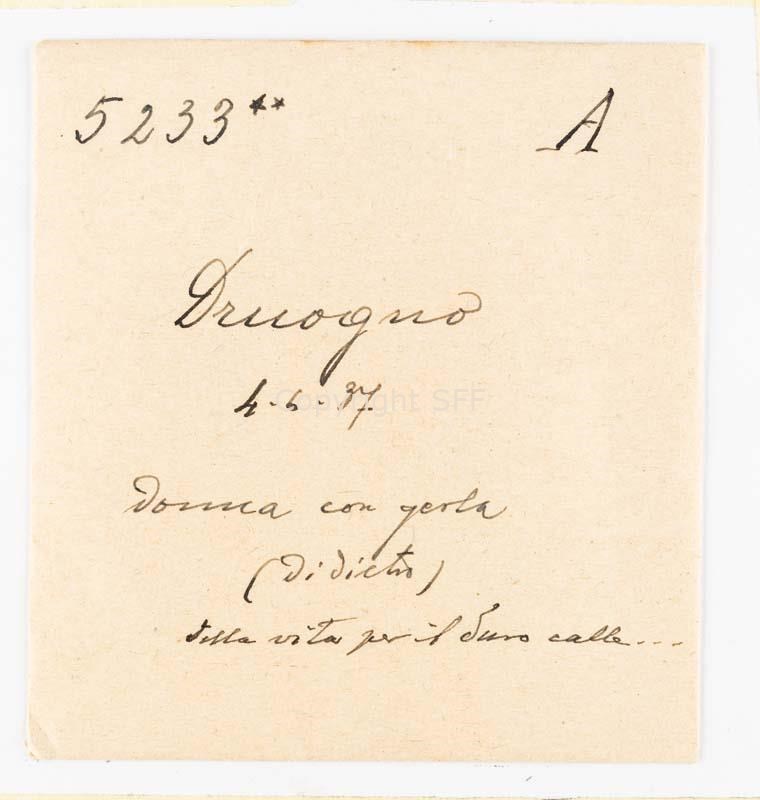 5233** A
Druogno
4-6-37.
donna con gerla
(di dietro)
della vita per il duro calle...
Copyright SFF